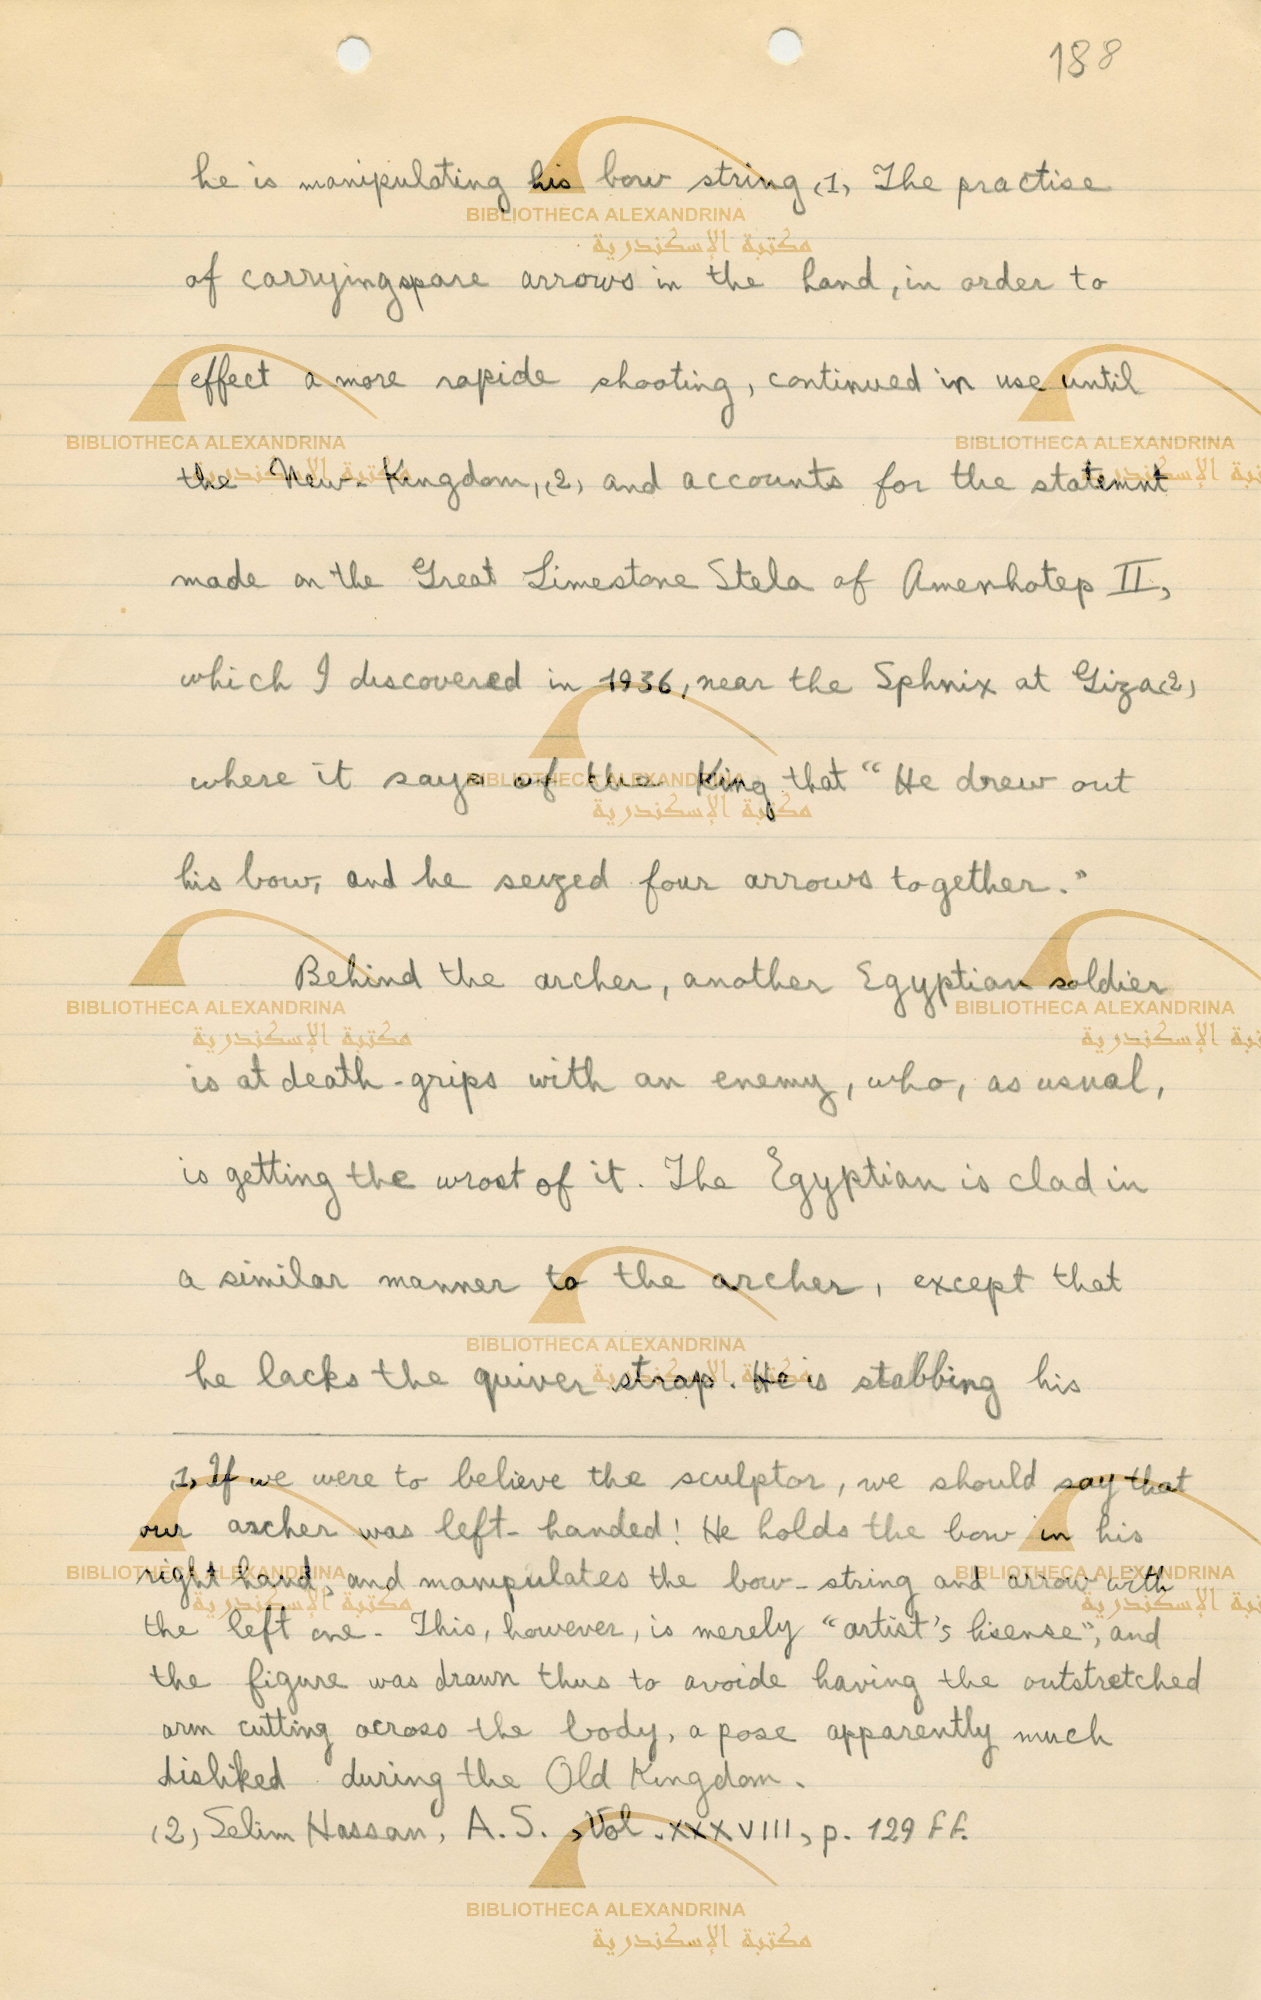 188
he is manipulating his bow string (1) The practise
of carrying spare arrows in the hand, in order to
effect a more rapide shooting, continued in use until
the New-Kingdom, (2) and accounts for the statemnt
made on the Great Limestone Stela of Amenhotep II,
which I discovered in 1936, near the Sphnix at Giza (2)
where it says of the King that "He drew out
his bow, and he seized four arrows together."
Behind the archer, another Egyptian soldier
is at death-grips with an enemy, who, as usual,
is getting the wrost of it. The Egyptian is clad in
a similar manner to the archer, except that
he lacks the quiver strap. He is stabbing his
(1) If we were to believe the sculptor, we should say that
our archer was left-handed! He holds the bow in his
right hand, and manipulates the bow-string and arrow with
the left one. This, however, is merely "artist's lisense", and
the figure was drawn thus to avoide having the outstretched
arm cutting across the body, a pose apparently much
disliked during the Old Kingdom.
(2) Selim Hassan, A.S., Vol. XXXVIII, p. 129 ff.
BIBLIOTHECA ALEXANDRINA
مكتبة الإسكندرية